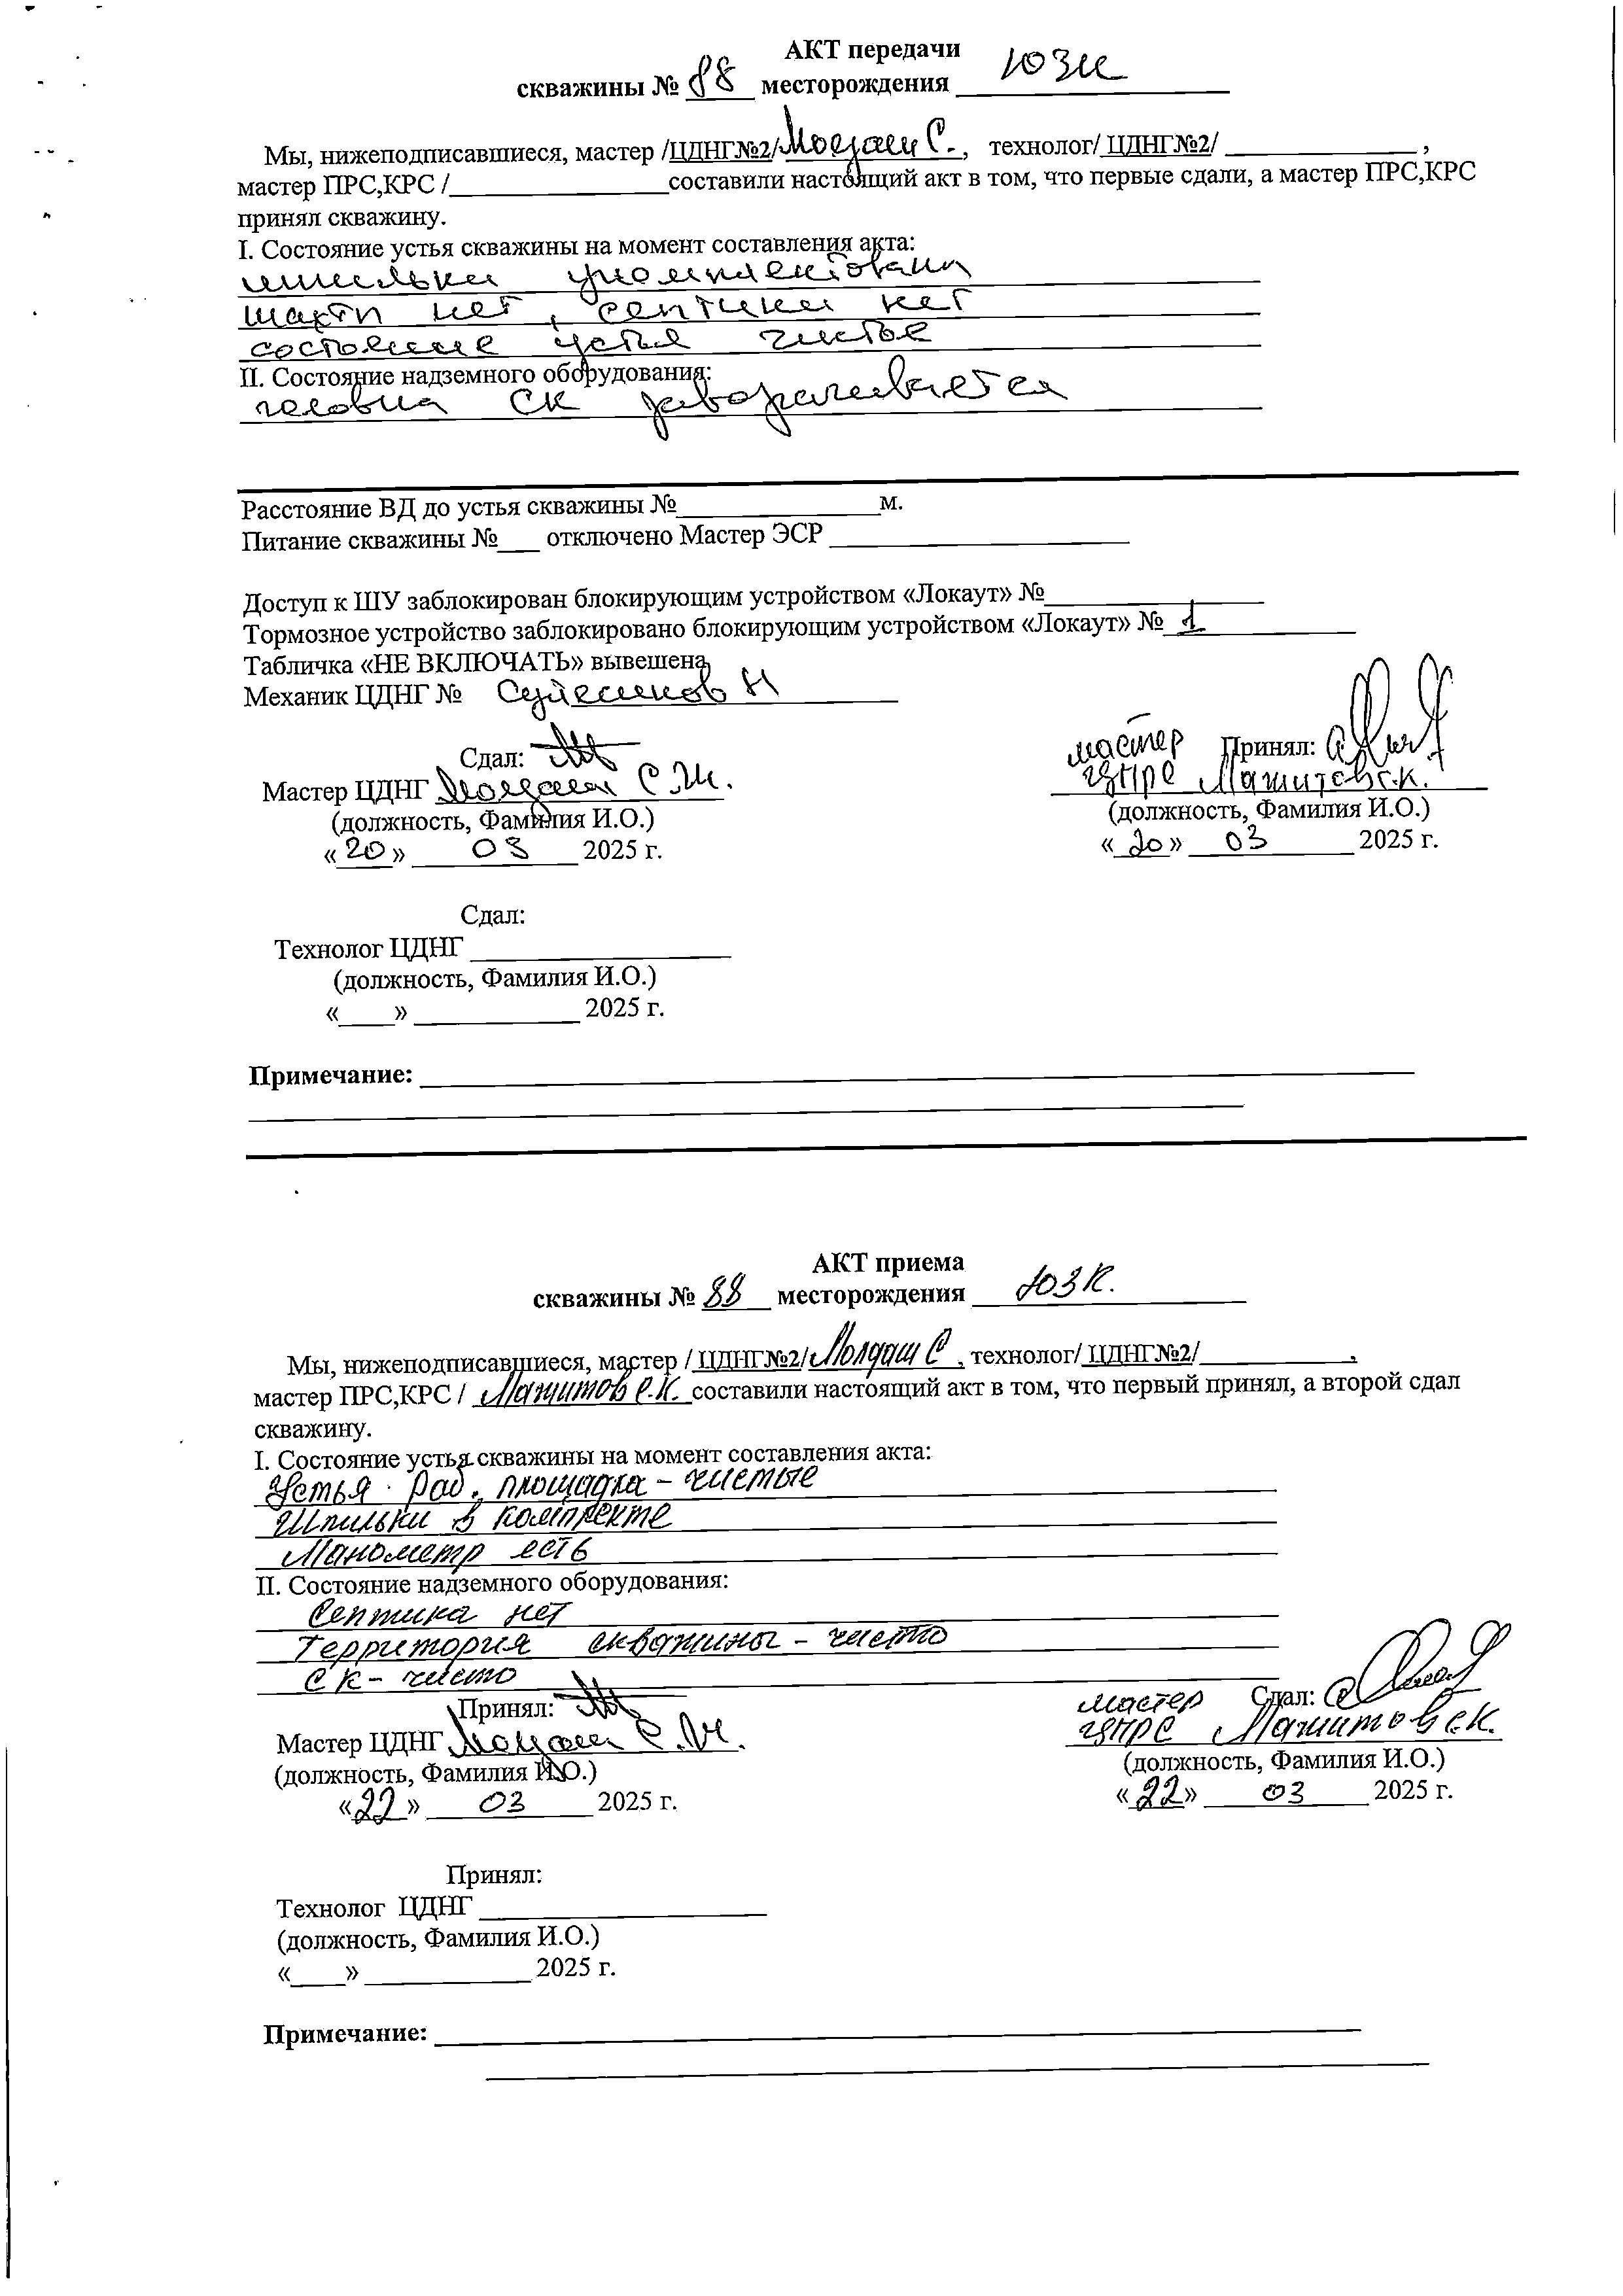 АКТ передачи
скважины № 88 месторождения ЮЗК
Мы, нижеподписавшиеся, мастер /ЦДНГ№2/ Молдаш С. , технолог/ ЦДНГ№2/ ____________ ,
мастер ПРС,КРС /____________составили настоящий акт в том, что первые сдали, а мастер ПРС,КРС
принял скважину.
I. Состояние устья скважины на момент составления акта:
шпильки укомплектован
шахты нет, септики нет
состояние устья чистое
II. Состояние надземного оборудования:
головка СК заворачивается
Расстояние ВД до устья скважины №____________м.
Питание скважины №___ отключено Мастер ЭСР ____________
Доступ к ШУ заблокирован блокирующим устройством «Локаут» №____________
Тормозное устройство заблокировано блокирующим устройством «Локаут» № 1
Табличка «НЕ ВКЛЮЧАТЬ» вывешена
Механик ЦДНГ № Сулейменов Н
Сдал: мастер Принял:
Мастер ЦДНГ Молдаш С.Ж. ЦПРС Мажитов С.К.
(должность, Фамилия И.О.) (должность, Фамилия И.О.)
«20» 03 2025 г. «20» 03 2025 г.
Сдал:
Технолог ЦДНГ ____________
(должность, Фамилия И.О.)
«____» ____________ 2025 г.
Примечание: ____________
АКТ приема
скважины № 88 месторождения ЮЗК.
Мы, нижеподписавшиеся, мастер / ЦДНГ№2/ Молдаш С , технолог/ ЦДНГ№2/____________,
мастер ПРС,КРС / Мажитов С.К. составили настоящий акт в том, что первый принял, а второй сдал
скважину.
I. Состояние устья скважины на момент составления акта:
Устья Раб. площадка - чистые
Шпильки в комплекте
Манометр есть
II. Состояние надземного оборудования:
Септика нет
Территория скважины - чисто
СК - чисто
Принял: мастер Сдал:
Мастер ЦДНГ Молдаш С.Ж. ЦПРС Мажитов С.К.
(должность, Фамилия И.О.) (должность, Фамилия И.О.)
«22» 03 2025 г. «22» 03 2025 г.
Принял:
Технолог ЦДНГ ____________
(должность, Фамилия И.О.)
«____» ____________ 2025 г.
Примечание: ____________